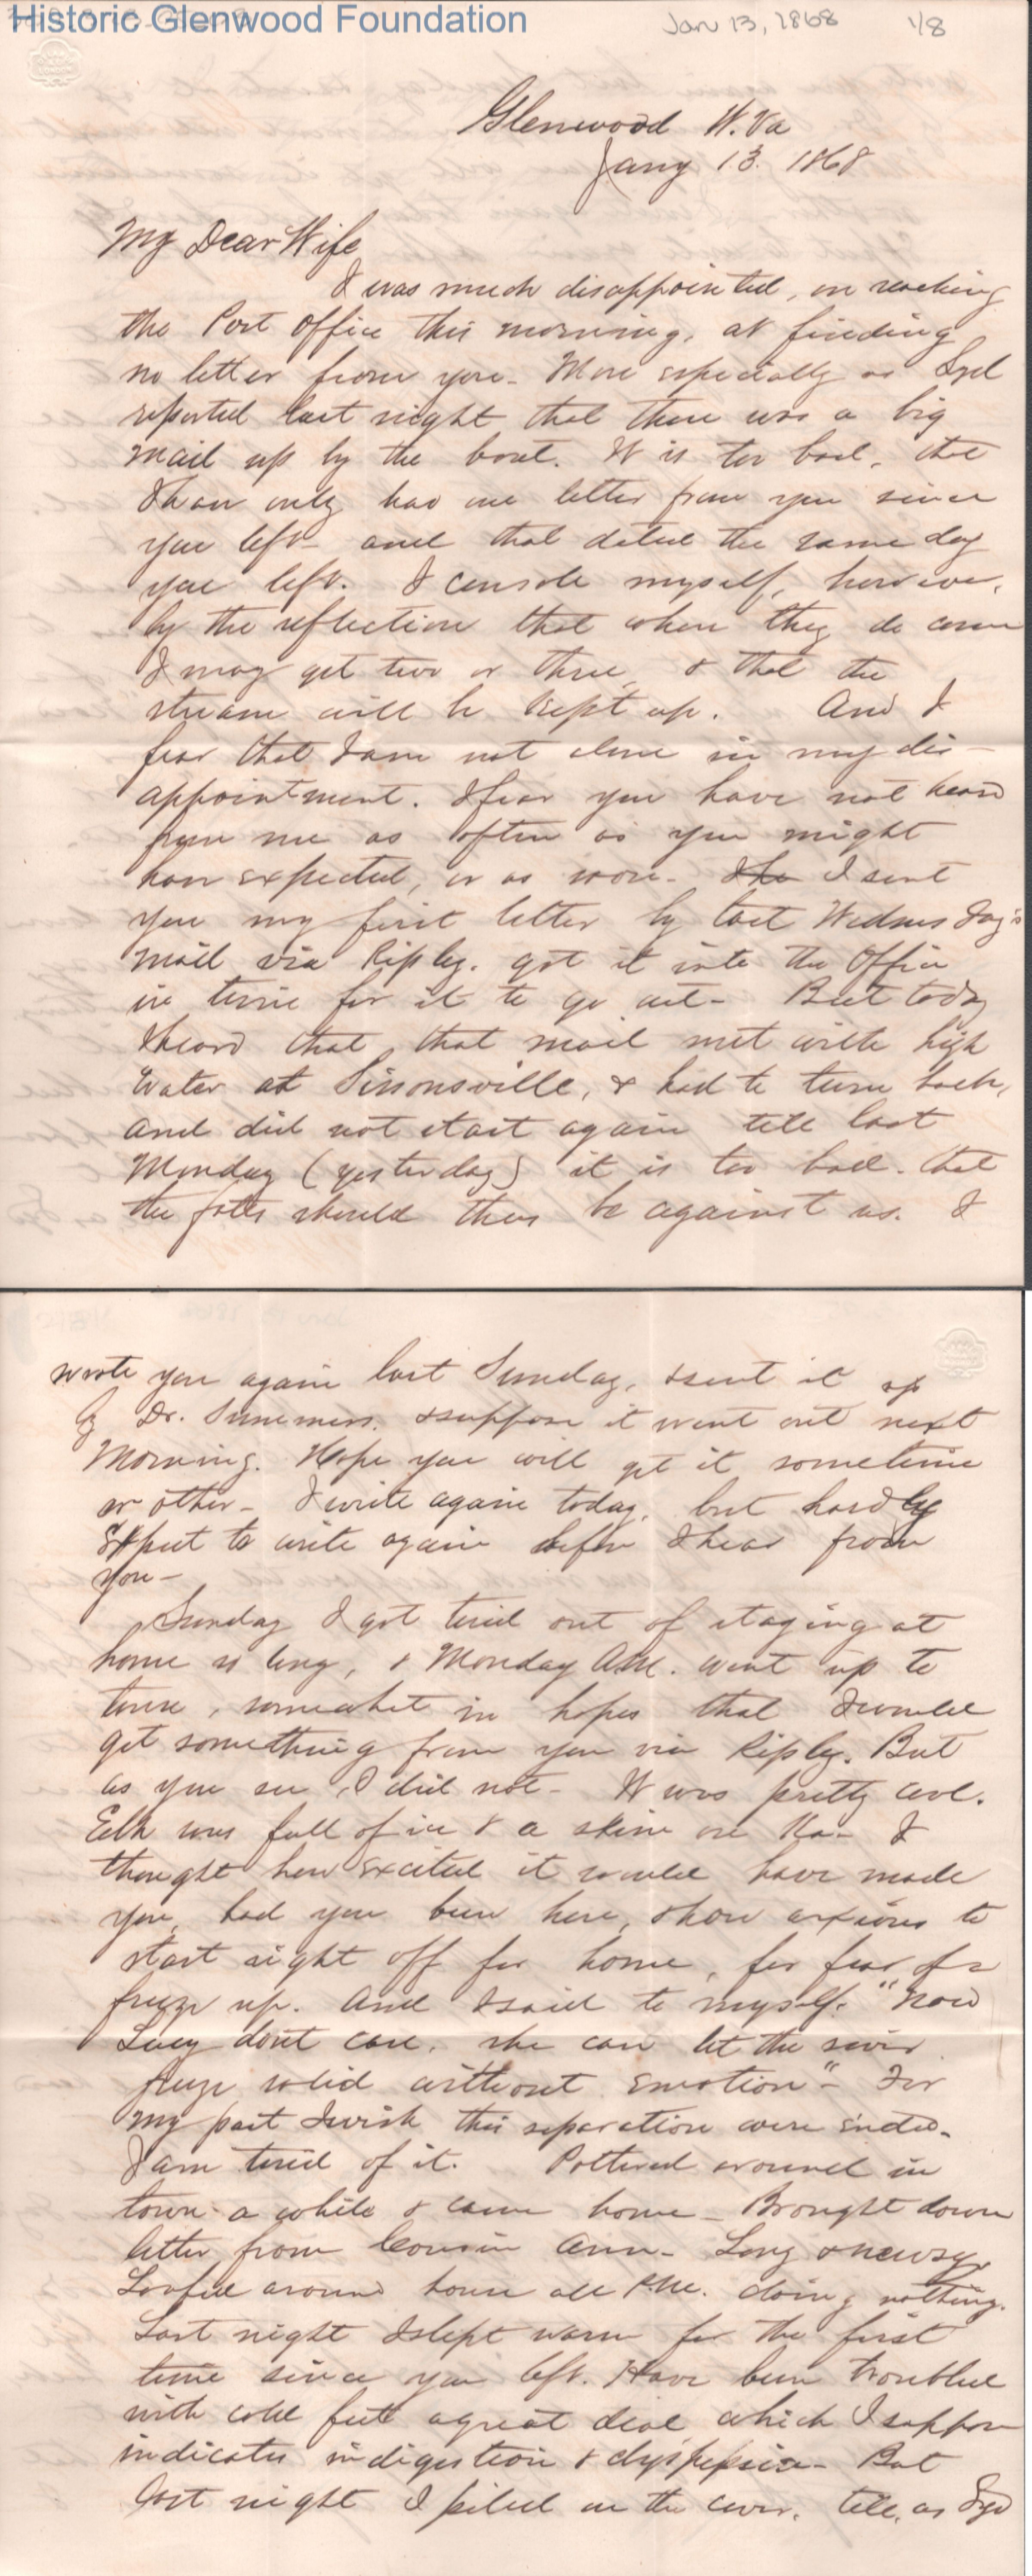 Historic Glenwood Foundation
Jan 13, 1868 1/8
Glenwood W. Va
Jany 13. 1868
My Dear Wife
I was much disappointed, on reaching
the Post Office this morning, at finding
no letter from you - More especially as Syd
reported last night that there was a big
mail up by the boat. It is too bad, that
I have only had one letter from you since
you left - and that dated the same day
you left. I console myself, however,
by the reflection that when they do come
I may get two or three, & that the
stream will be kept up. And I
fear that I am not alone in my dis-
appointment. I fear you have not heard
from me as often as you might
have expected, or as soon - I sent
you my first letter by last Wednesday's
mail via Ripley. got it into the Office
in time for it to go out - But today
I heard that, that mail met with high
water at Sissonsville, & had to turn back,
and did not start again till last
Monday (yesterday) it is too bad. that
the fates should thus be against us. I
wrote you again last Sunday, & sent it up
by Dr. Summers. & suppose it went out next
Morning. Hope you will get it sometime
or other - I write again today, but hardly
expect to write again before I hear from
you -
Sunday I got tired out of staying at
home so long, & Monday A.M. went up to
town, somewhat in hopes that I would
get something from you via Ripley. But
as you see, I did not - It was pretty cool.
Elk was full of ice & a skim on Ka - I
thought how excited it would have made
you, had you been here, & how anxious to
start right off for home, for fear of a
freeze up. And I said to myself. "Now
Lucy dont care, she can let the river
freeze solid without emotion" - For
my part I wish this separation were ended.
I am tired of it. Pottered around in
town a while & came home - Brought down
letter from Cousin Ann - Long & newsy.
Loafed around home all P.M. doing nothing.
Last night I slept warm for the first
time since you left. Have been troubled
with cold feet a great deal which I suppose
indicates indigestion & dyspepsia - But
last night I piled on the cover, till, as Syd